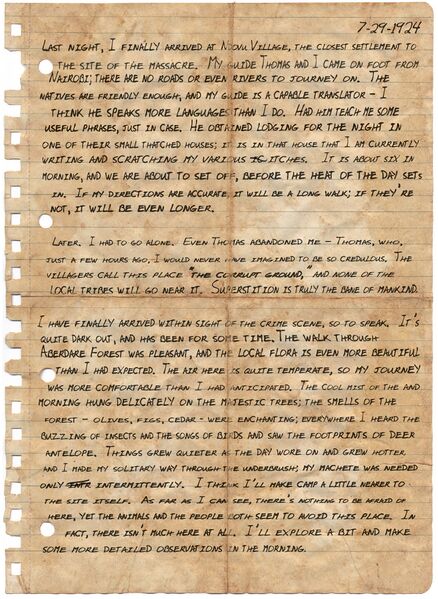 7-29-1924
Last night, I finally arrived at Ndovu Village, the closest settlement to
the site of the massacre. My guide Thomas and I came on foot from
Nairobi; there are no roads or even rivers to journey on. The
natives are friendly enough, and my guide is a capable translator – I
think he speaks more languages than I do. Had him teach me some
useful phrases, just in case. He obtained lodging for the night in
one of their small thatched houses; it is in that house that I am currently
writing and scratching my various itches. It is about six in
morning, and we are about to set off, before the heat of the day sets
in. If my directions are accurate, it will be a long walk; if they're
not, it will be even longer.
Later. I had to go alone. Even Thomas abandoned me – Thomas, who,
just a few hours ago, I would never have imagined to be so credulous. The
villagers call this place "the corrupt ground," and none of the
local tribes will go near it. Superstition is truly the bane of mankind.
I have finally arrived within sight of the crime scene, so to speak. It's
quite dark out, and has been for some time. The walk through
Aberdare Forest was pleasant, and the local flora is even more beautiful
than I had expected. The air here is quite temperate, so my journey
was more comfortable than I had anticipated. The cool mist of the and
morning hung delicately on the majestic trees; the smells of the
forest – olives, figs, cedar – were enchanting; everywhere I heard the
buzzing of insects and the songs of birds and saw the footprints of deer
antelope. Things grew quieter as the day wore on and grew hotter
and I made my solitary way through the underbrush; my machete was needed
only intermittently. I think I'll make camp a little nearer to
the site itself. As far as I can see, there's nothing to be afraid of
here, yet the animals and the people both seem to avoid this place. In
fact, there isn't much here at all. I'll explore a bit and make
some more detailed observations in the morning.